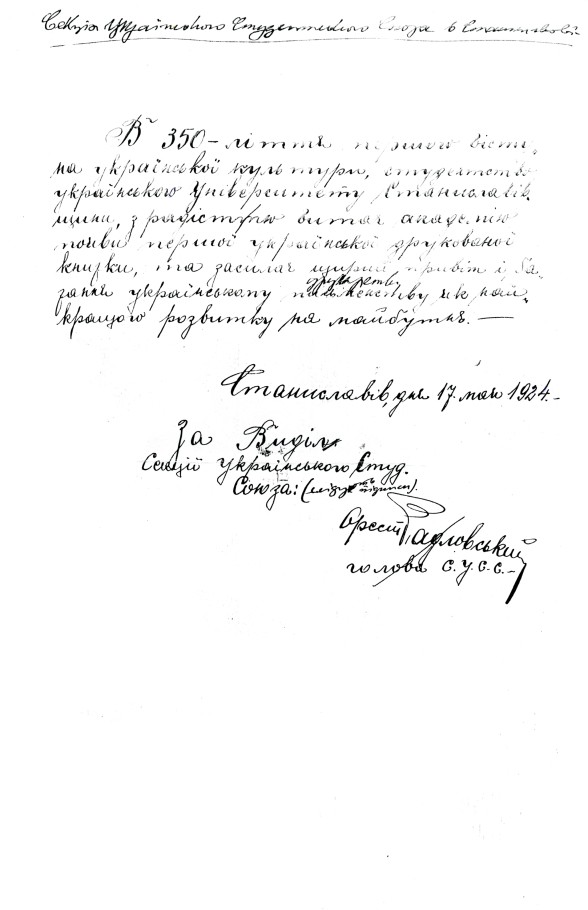 Секція Українського Студентського Союза в Станиславові
В 350-ліття першого вістни-
ка української культури, студентство
українського Університету Станиславів-
щини, з радістю витає академію
появи першої української друкованої
книжки, та засилає щирий привіт і ба-
жання українському друкарству як най-
кращого розвитку на майбутнє. —
Станиславів, дня 17. мая 1924.-
За Виділ
Секції Українського Студ.
Союза: (слідують підписи).
Орест Павловський
голова С.У.С.С.-